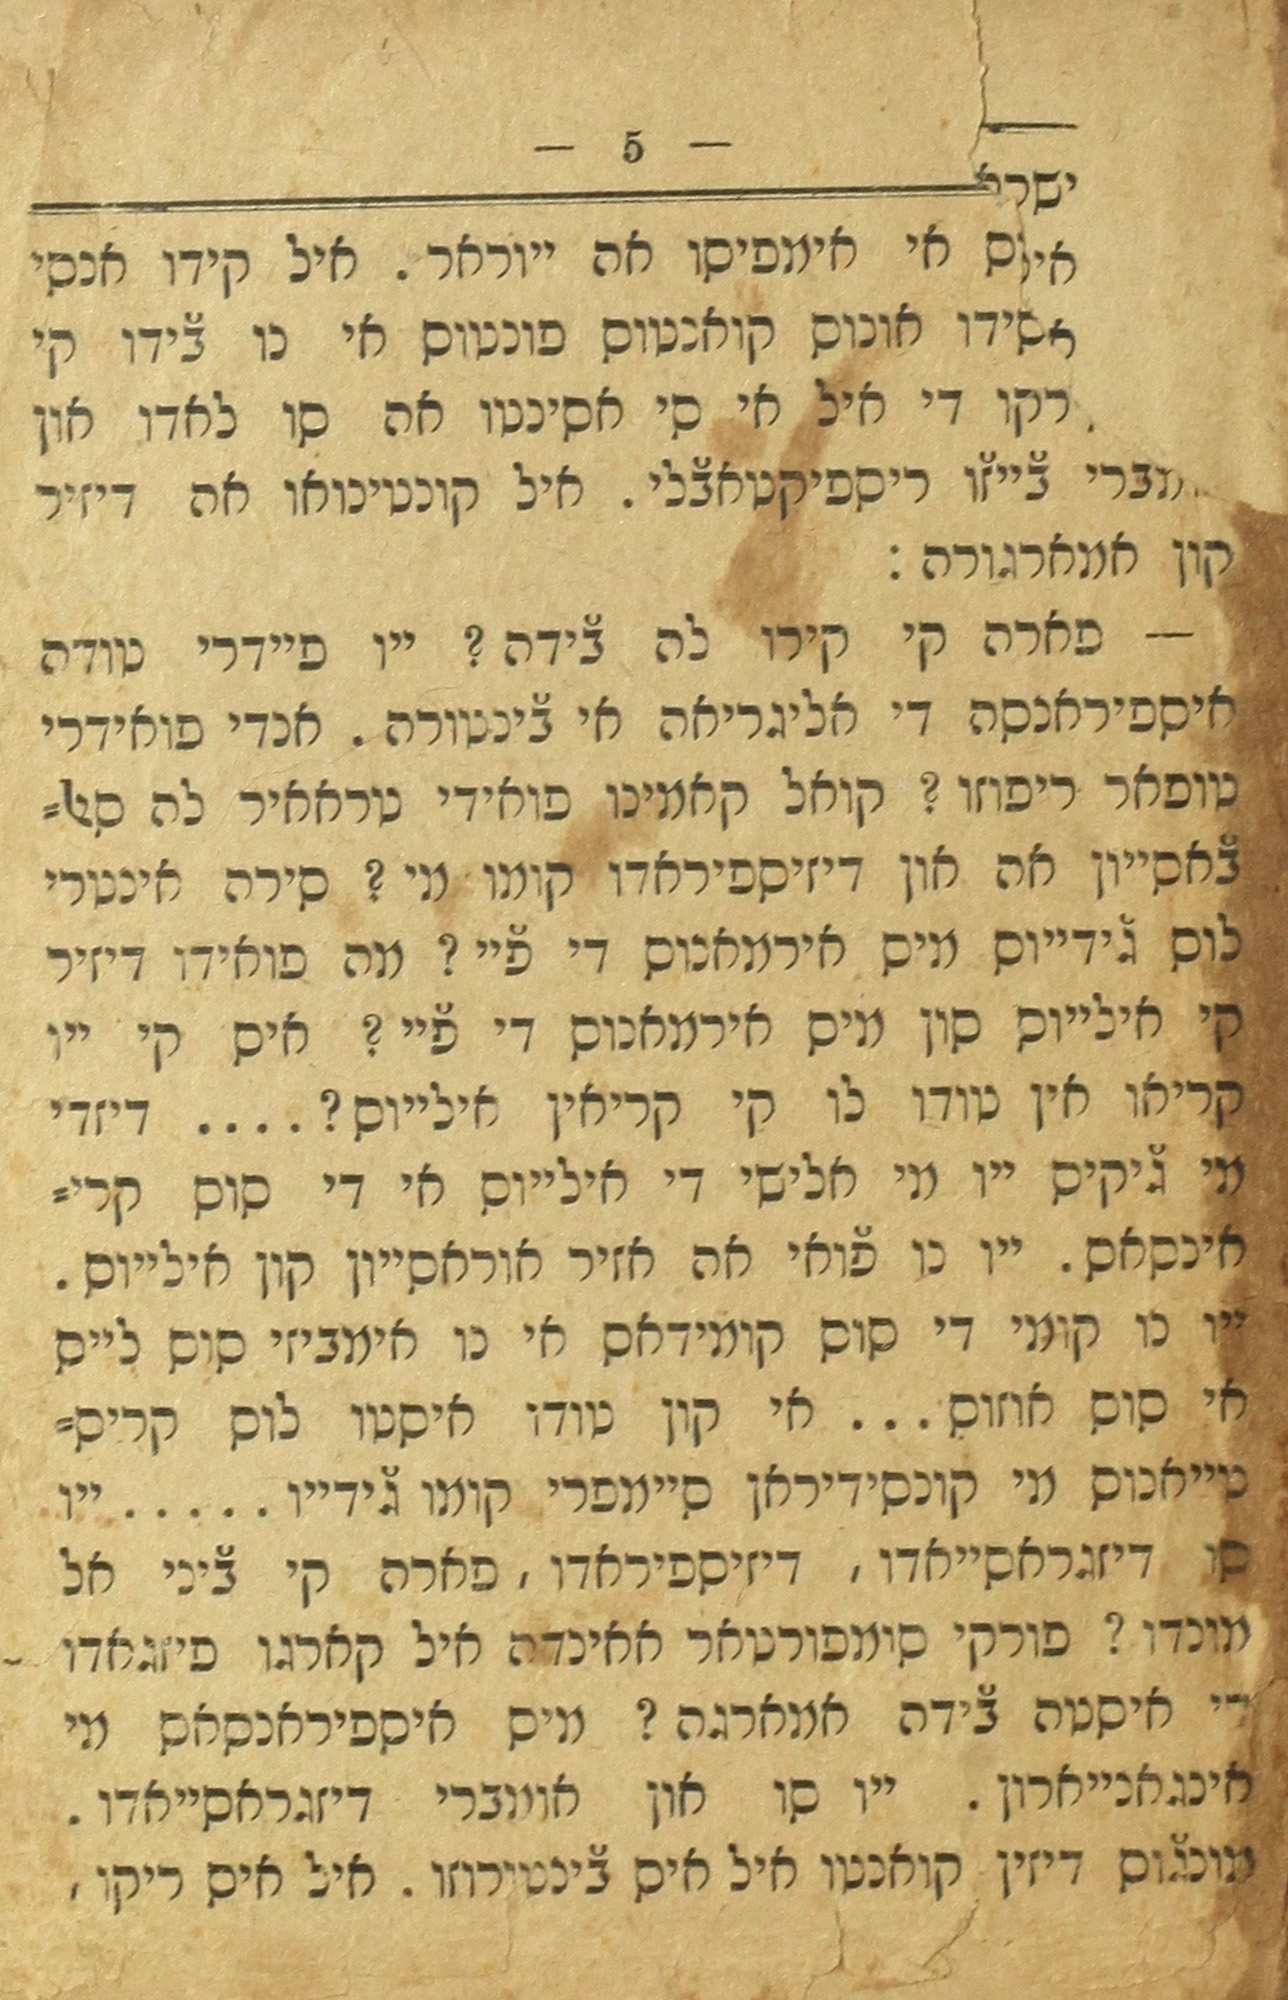 — 5 —
אי אימפיסו אה ייוראר. איל קידו אנסי
אונוס קואנטוס פונטוס אי נו ב׳ידו קי
די איל אי סי אסינטו אה סו לאדו און
ב׳ייז׳ו ריספיקטאב׳לי. איל קונטינואו אה דיזיר
קון אמארגורה :
— פארה קי קירו לה ב׳ידה? ייו פיידרי טודה
איספיראנסה די אליגריאה אי ב׳ינטורה. אנדי פואידרי
טופאר ריפוזו? קואל קאמינו פואידי טראאיר לה סל=
ב׳אסייון אה און דיזיספיראדו קומו מי? סירה אינטרי
לוס ג׳ידייוס מיס אירמאנוס די פ׳יי? מה פואידו דיזיר
קי אילייוס סון מיס אירמאנוס די פ׳יי? איס קי ייו
קריאו אין טודו לו קי קריאין אילייוס?.... דיזדי
מי ג׳יקיס ייו מי אלישי די אילייוס אי די סוס קרי=
אינסאס. ייו נו פ׳ואי אה אזיר אוראסייון קון אילייוס.
ייו נו קומי די סוס קומידאס אי נו אימביזי סוס לייס
אי סוס אוזוס... אי קון טודו איסטו לוס קריס=
טייאנוס מי קונסידיראן סיימפרי קומו ג׳ידייו..... ייו
סו דיזגראסייאדו, דיזיספיראדו, פארה קי ב׳יני אל
מונדו? פורקי סומפורטאר אאינדה איל קארגו פיזגאדו
די איסטה ב׳ידה אמארגה? מיס איספיראנסאס מי
אינגאנייארון. ייו סו און אומברי דיזגראסייאדו.
מונג׳וס דיזין קואנטו איל איס ב׳ינטורוזו. איל איס ריקו,